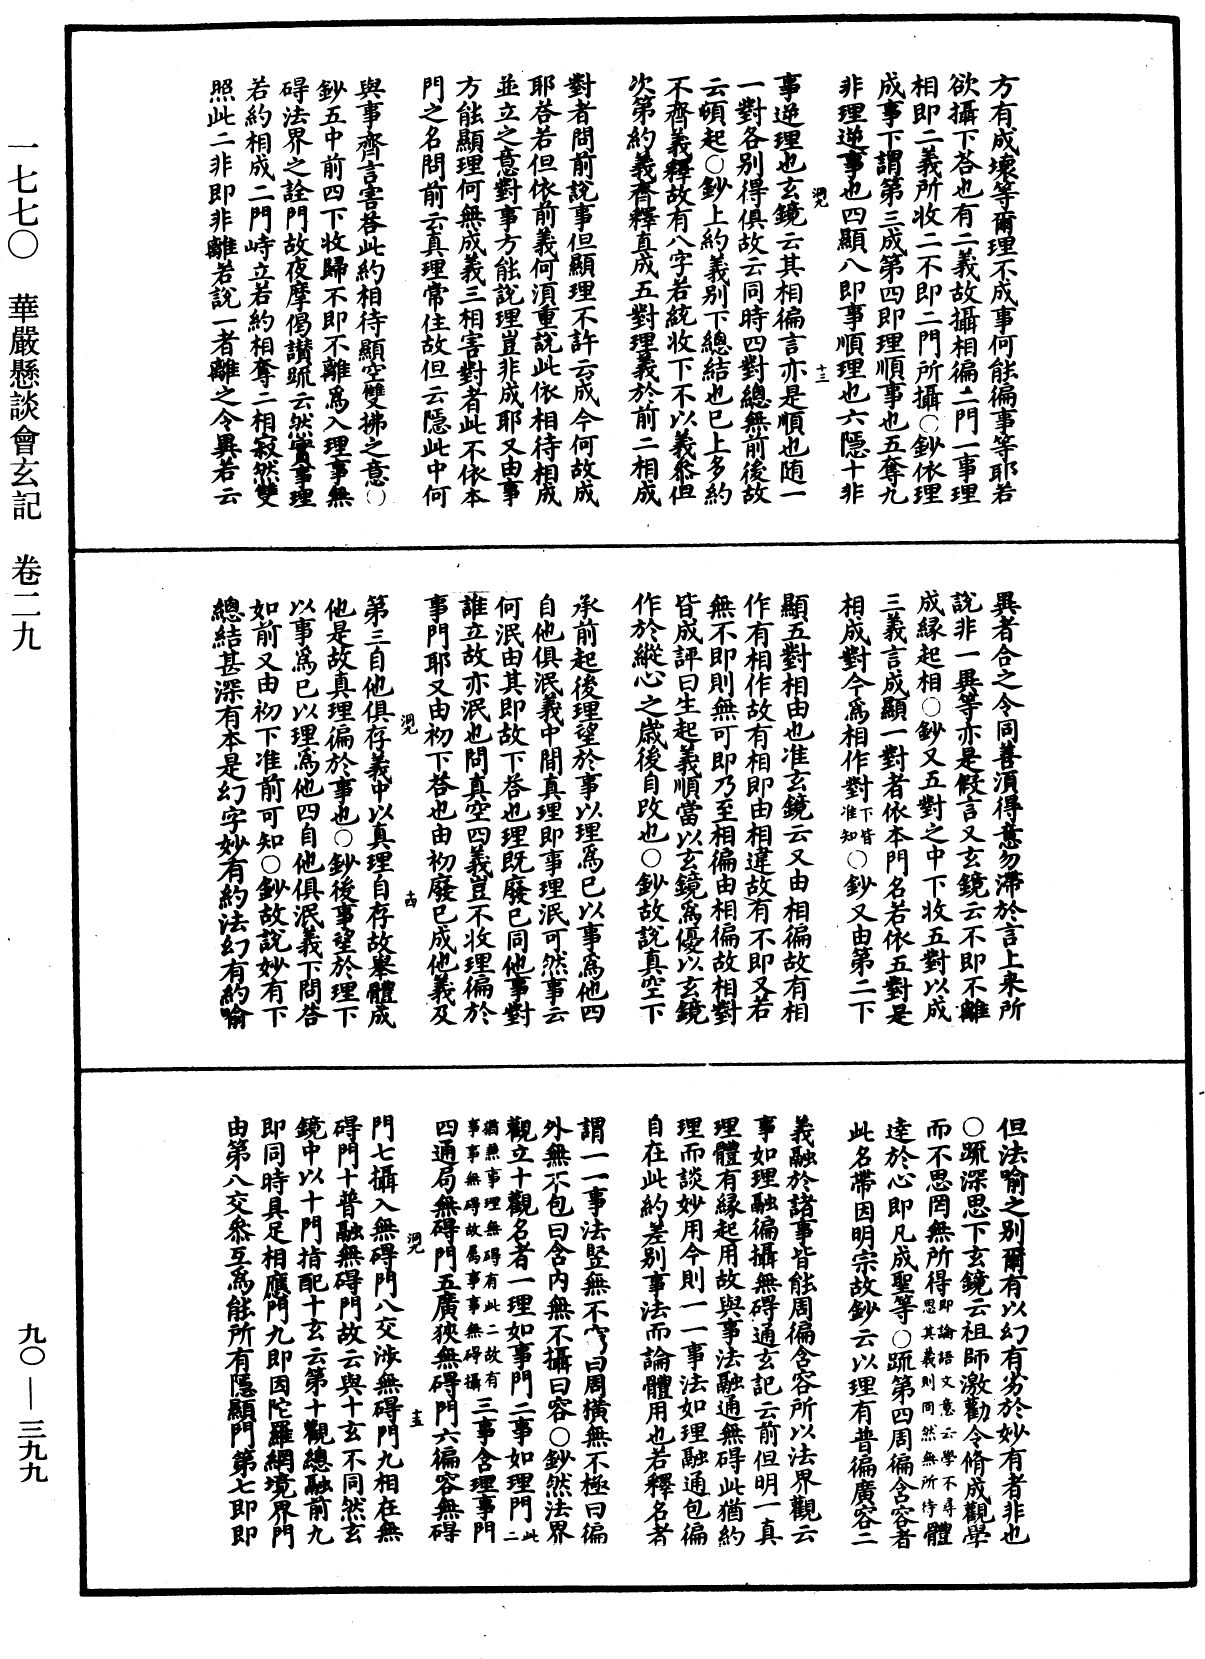 一七七〇　華嚴懸談會玄記　卷二九
九〇—三九九
方有成壞等爾理不成事何能徧事等耶若
欲攝下荅也有二義故攝相徧二門一事理
相即二義所收二不即二門所攝〇鈔依理
成事下謂第三成第四即理順事也五奪九
非理逆事也四顯八即事順理也六隱十非
事逆理也玄鏡云其相徧言亦是順也随一
一對各别得俱故云同時四對總無前後故
云頓起〇鈔上約義别下總結也已上多約
不齊義釋故有八字若統收下不以義叅但
次第約義齊釋真成五對理義於前二相成
對者問前說事但顯理不許云成今何故成
耶荅若但依前義何湏重說此依相待相成
並立之意對事方能說理豈非成耶又由事
方能顯理何無成義三相害對者此不依本
門之名問前云真理常住故但云隱此中何
與事齊言害荅此約相待顯空雙拂之意〇
鈔五中前四下收歸不即不離爲入理事無
碍法界之詮門故夜摩偈讃䟽云然實事理
若約相成二門峙立若約相奪二相寂然雙
照此二非即非離若說一者離之令異若云
異者合之令同善湏得意勿滯於言上來所
說非一異等亦是假言又玄鏡云不即不離
成緣起相〇鈔又五對之中下收五對以成
三義言成顯一對者依本門名若依五對是
相成對今爲相作對下皆准知〇鈔又由第二下
顯五對相由也准玄鏡云又由相徧故有相
作有相作故有相即由相違故有不即又若
無不即則無可即乃至相徧由相徧故相對
皆成評曰生起義順當以玄鏡爲優以玄鏡
作於縱心之歲後自改也〇鈔故說真空下
承前起後理望於事以理爲已以事爲他四
自他俱泯義中間真理即事理泯可然事云
何泯由其即故下荅也理既廢已同他事對
誰立故亦泯也問真空四義豈不收理徧於
事門耶又由初下荅也由初廢已成他義及
第三自他俱存義中以真理自存故舉體成
他是故真理徧於事也〇鈔後事望於理下
以事爲已以理爲他四自他俱泯義下問荅
如前又由初下准前可知〇鈔故說妙有下
總結甚深有本是幻字妙有約法幻有約喻
但法喻之别爾有以幻有劣於妙有者非也
〇䟽深思下玄鏡云祖師激勸令脩成觀學
而不思罔無所得即論語文意云學不尋思其義則罔然無所待體
逹於心即凡成聖等〇䟽第四周徧含容者
此名帶因明宗故鈔云以理有普徧廣容二
義融於諸事皆能周徧含容所以法界觀云
事如理融徧攝無碍通玄記云前但明一真
理體有緣起用故與事法融通無碍此猶約
理而談妙用今則一一事法如理融通包徧
自在此約差别事法而論體用也若釋名者
謂一一事法竪無不窮曰周横無不極曰徧
外無不包曰含内無不攝曰容〇鈔然法界
觀立十觀名者一理如事門二事如理門此二猶兼事理無碍有此二故有事事無碍故屬事事無碍攝三事含理事門
四通局無碍門五廣狹無碍門六徧容無碍
門七攝入無碍門八交涉無碍門九相在無
碍門十普融無碍門故云與十玄不同然玄
鏡中以十門指配十玄云第十觀總融前九
即同時具足相應門九即因陀羅網境界門
由第八交叅互爲能所有隱顯門第七即即